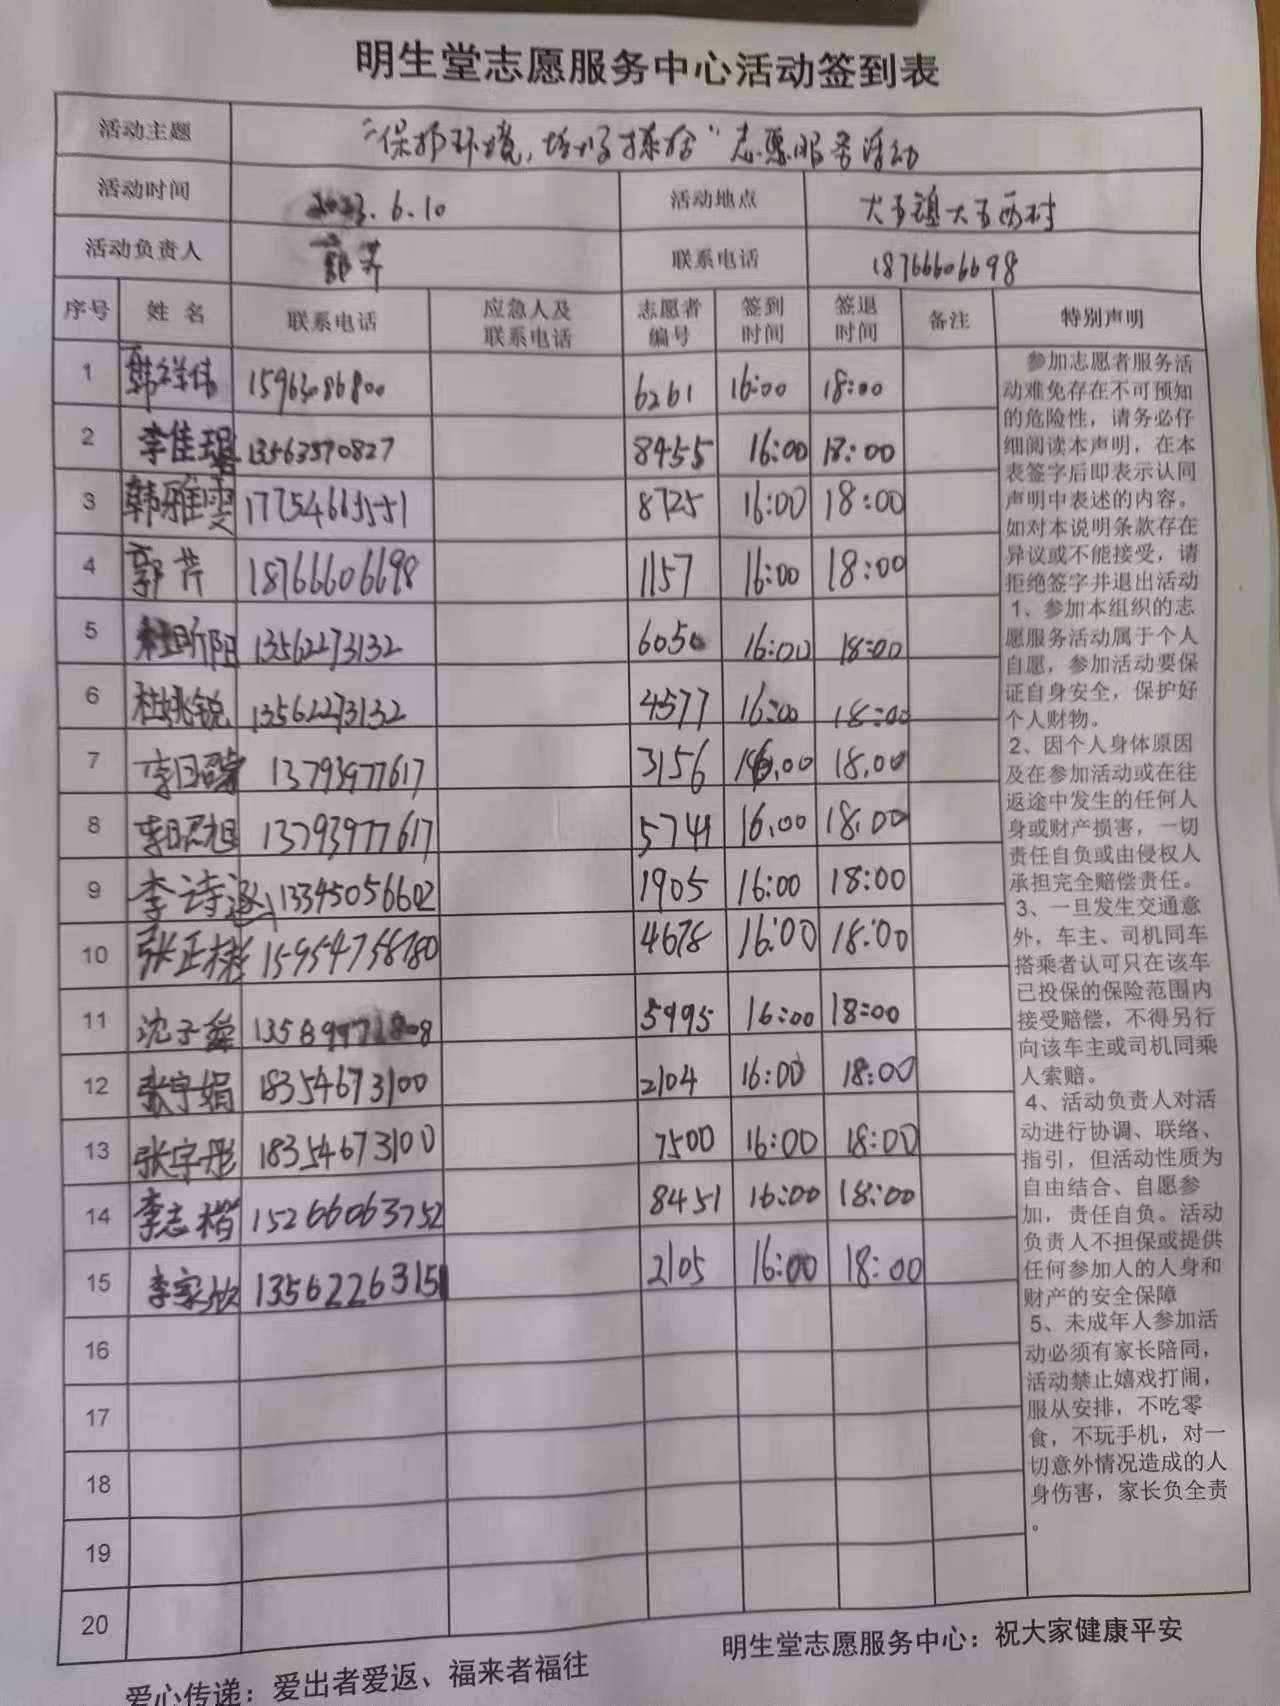 明生堂志愿服务中心活动签到表
活动主题 "保护环境,垃圾捡拾"志愿服务活动
活动时间 2023.6.10 活动地点 大五镇大五西村
活动负责人 郭芹 联系电话 18766606698
序号 姓名 联系电话 应急人及联系电话 志愿者编号 签到时间 签退时间 备注 特别声明
1 韩祥伟 6261 16:00 18:00
2 李佳琚 13563570827 8455 16:00 18:00
3 韩雅雯 8725 16:00 18:00
4 郭芹 18766606698 1157 16:00 18:00
5 杜昕阳 13562273132 6050 16:00 18:00
6 杜姚锐 13562273132 4577 16:00 18:00
7 13793977617 3156 16.00 18.00
8 李昭旭 13793977617 5741 16.00 18.00
9 李诗 13345056602 1905 16:00 18:00
10 张正彬 15954758780 4678 16:00 18:00
11 沈子 5995 16:00 18:00
12 张宇娟 18354673100 2104 16:00 18:00
13 张宇彤 18354673100 7500 16:00 18:00
14 李志楷 15266063752 8451 16:00 18:00
15 李家欣 13562263151 2105 16:00 18:00
16
17
18
19
20
参加志愿者服务活
动难免存在不可预知
的危险性，请务必仔
细阅读本声明，在本
表签字后即表示认同
声明中表述的内容。
如对本说明条款存在
异议或不能接受，请
拒绝签字并退出活动
1、参加本组织的志
愿服务活动属于个人
自愿，参加活动要保
证自身安全，保护好
个人财物。
2、因个人身体原因
及在参加活动或在往
返途中发生的任何人
身或财产损害，一切
责任自负或由侵权人
承担完全赔偿责任。
3、一旦发生交通意
外，车主、司机同车
搭乘者认可只在该车
已投保的保险范围内
接受赔偿，不得另行
向该车主或司机同乘
人索赔。
4、活动负责人对活
动进行协调、联络、
指引，但活动性质为
自由结合、自愿参
加，责任自负。活动
负责人不担保或提供
任何参加人的人身和
财产的安全保障
5、未成年人参加活
动必须有家长陪同，
活动禁止嬉戏打闹，
服从安排，不吃零
食，不玩手机，对一
切意外情况造成的人
身伤害，家长负全责
。
爱心传递：爱出者爱返、福来者福往 明生堂志愿服务中心：祝大家健康平安